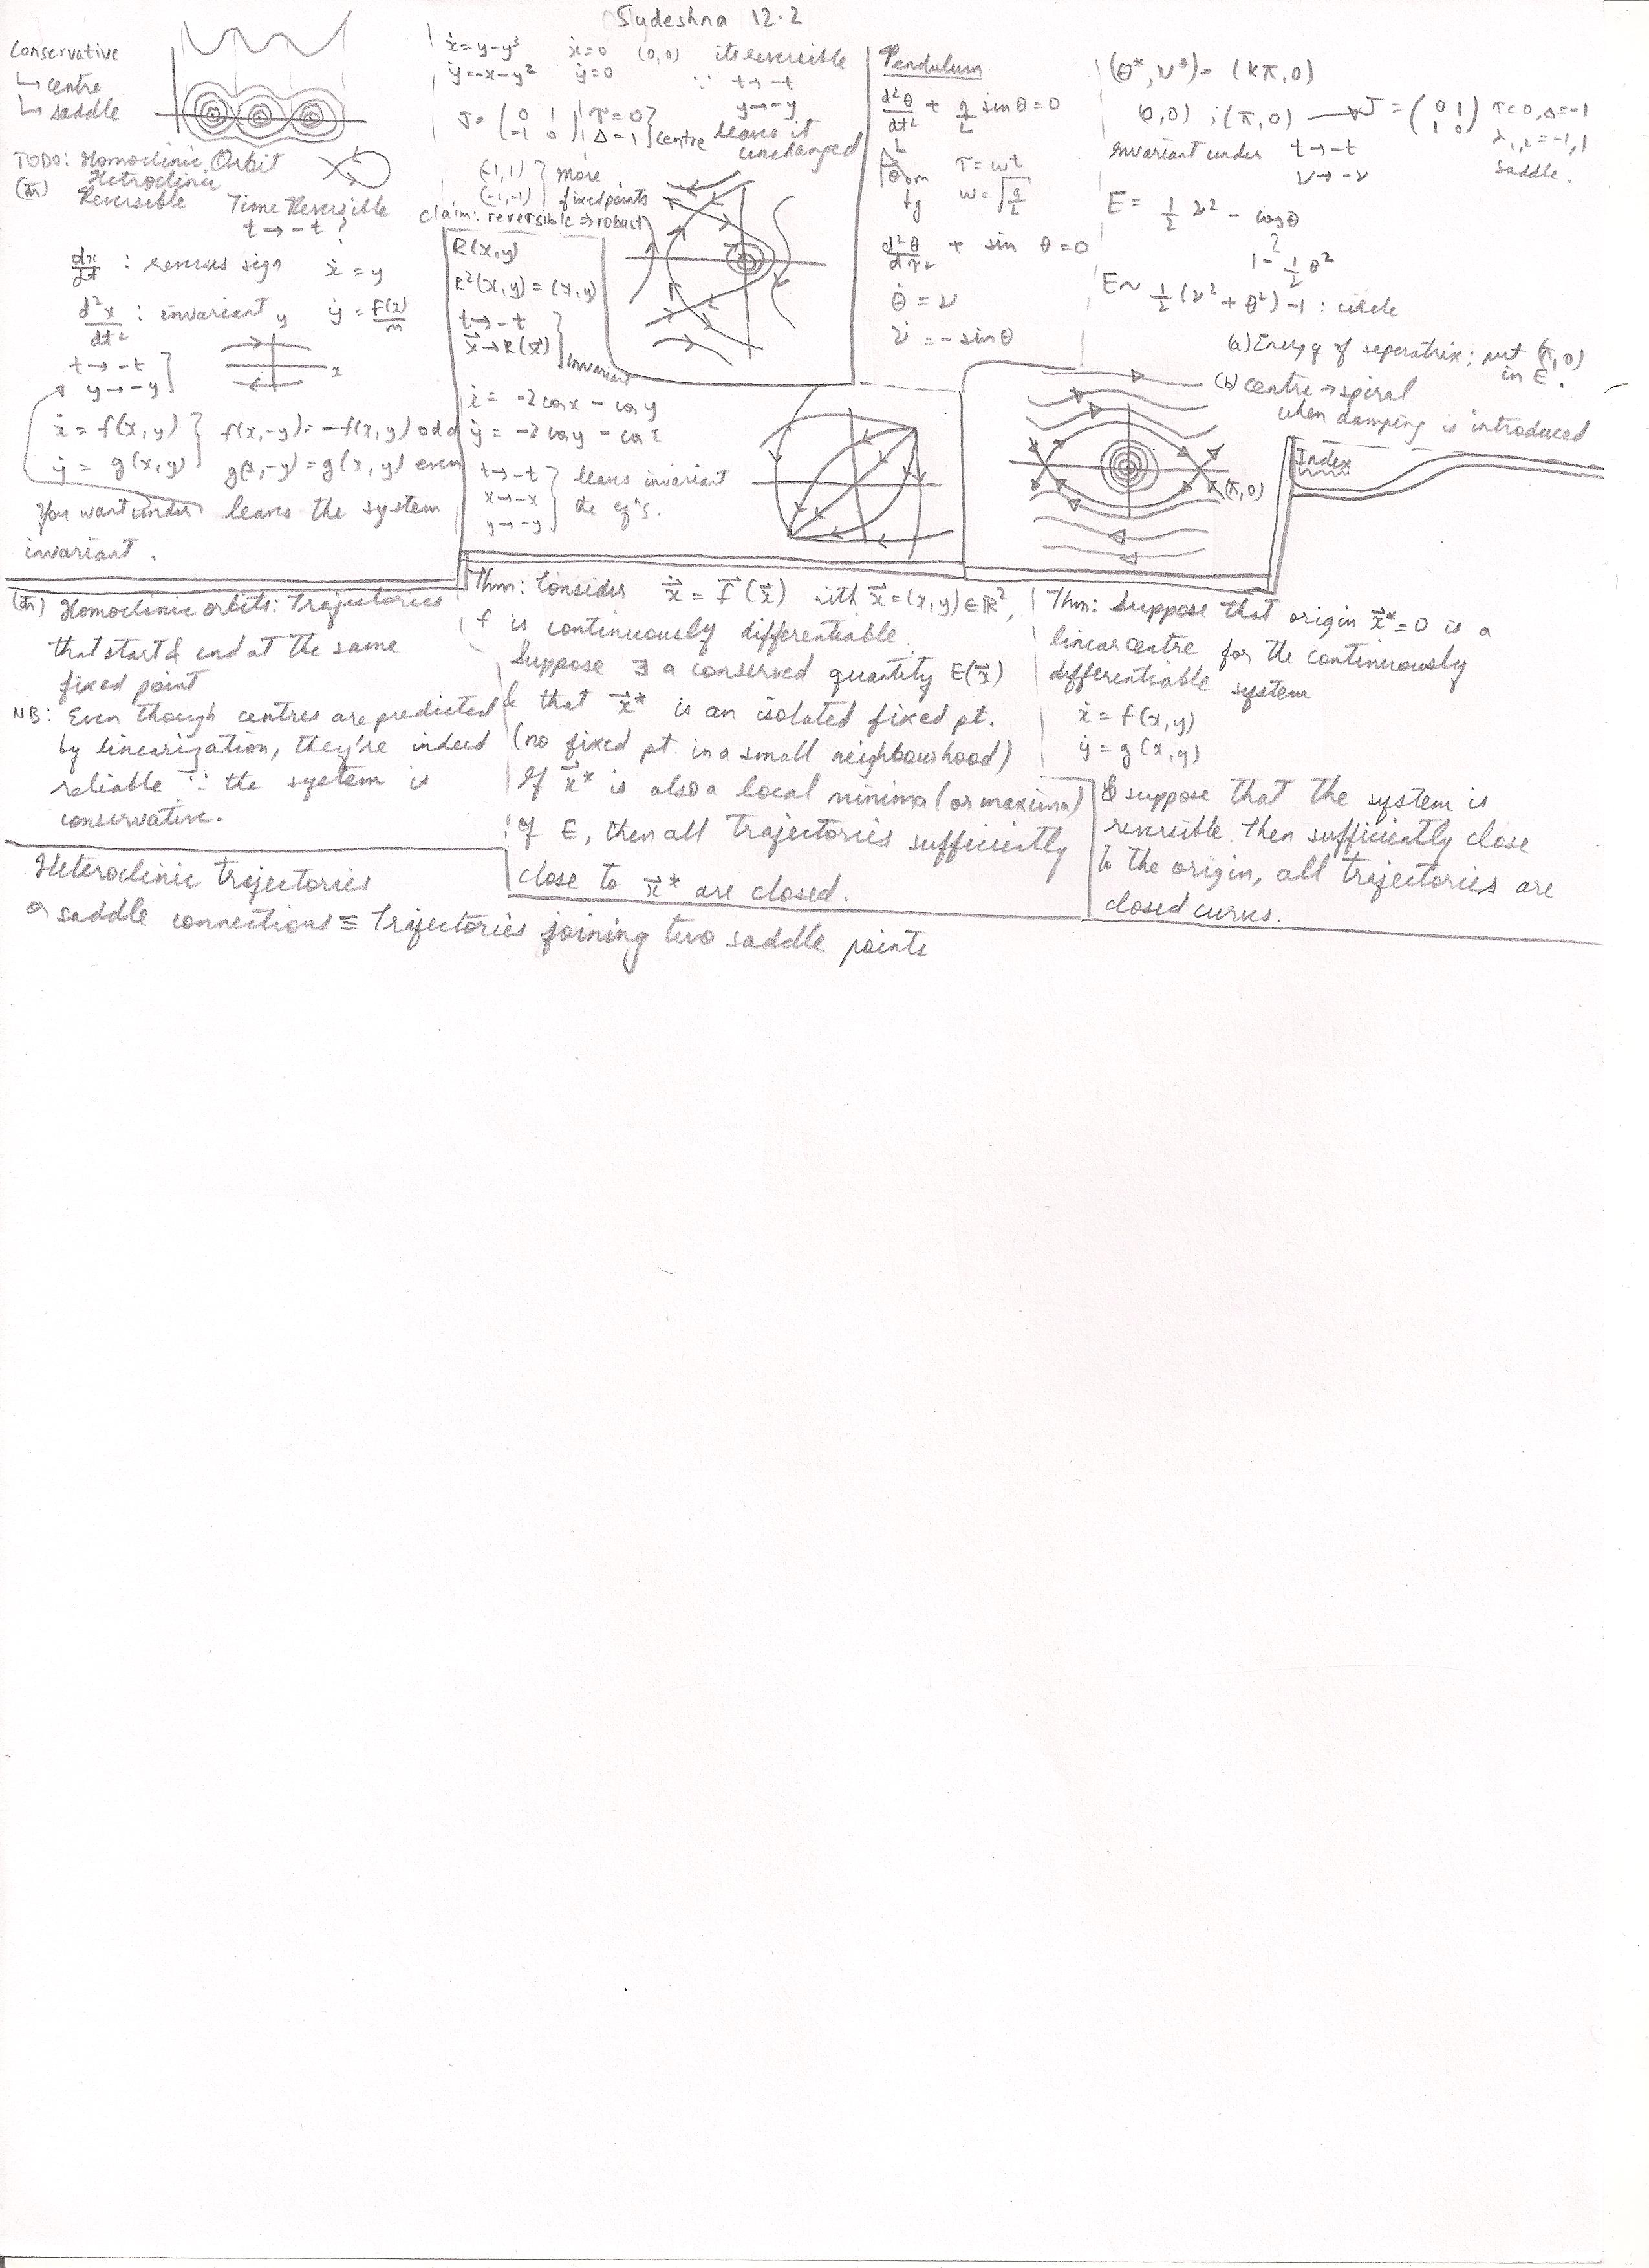 Sudeshna 12.2
Conservative
↳ centre
↳ saddle
TODO: Homoclinic Orbit
Hetroclinic
Reversible Time Reversible
t → -t ?
dx/dt : reverses sign ẋ = y
d²x/dt² : invariant ẏ = f(x)/m
y
x
t → -t
y → -y
ẋ = f(x,y) } f(x,-y) = -f(x,y) odd
ẏ = g(x,y) g(x,-y) = g(x,y) even
You want under leaves the system
invariant.
ẋ = y-y³ ẋ=0 (0,0) its reversible
ẏ = -x-y² ẏ=0 ∵ t → -t
y → -y
J = (0 1; -1 0) τ=0 Δ=1 } centre leaves it
unchanged
(-1,1) } more
(-1,-1) fixed points
claim: reversible ⇒ robust
R(x,y)
R²(x,y) = (x,y)
t → -t
x⃗ → R(x⃗) } invariant
ẋ = -2 cos x - cos y
ẏ = -2 cos y - cos x
t → -t } leaves invariant
x → -x the eqⁿs.
y → -y
Pendulum
d²θ/dt² + g/L sin θ = 0
L
θ m τ = ωt
↓g ω = √(g/L)
d²θ/dτ² + sin θ = 0
θ̇ = ν
ν̇ = - sin θ
(θ*, ν*) = (kπ, 0)
(0,0) ; (π,0) → J = (0 1; 1 0) τ=0, Δ=-1
λ₁,₂ = -1,1
saddle.
Invariant under t → -t
ν → -ν
E = ½ ν² - cos θ
1 - ½ θ²
E ~ ½ (ν² + θ²) - 1 : circle
(a) Energy of seperatrix: put (π,0)
in E.
(b) centre → spiral
when damping is introduced
(π,0)
Index
Homoclinic orbits: Trajectories
that start & end at the same
fixed point
NB: Even though centres are predicted
by linearization, they're indeed
reliable ∵ the system is
conservative.
Heteroclinic trajectories
or saddle connections ≡ Trajectories joining two saddle points
Thm: Consider ẋ⃗ = f⃗(x⃗) with x⃗ = (x,y) ∈ ℝ²,
f is continuously differentiable.
Suppose ∃ a conserved quantity E(x⃗)
& that x⃗* is an isolated fixed pt.
(no fixed pt. in a small neighbourhood)
If x⃗* is also a local minima (or maxima)
of E, then all trajectories sufficiently
close to x⃗* are closed.
Thm: Suppose that origin x⃗*=0 is a
linear centre for the continuously
differentiable system
ẋ = f(x,y)
ẏ = g(x,y)
& suppose that the system is
reversible. Then sufficiently close
to the origin, all trajectories are
closed curves.